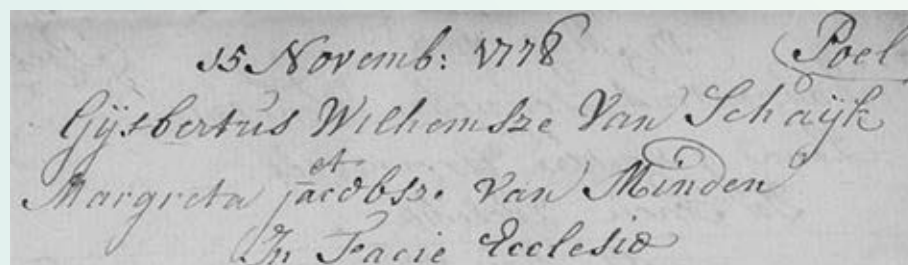 15 Novemb: 1778 Poel
Gijsbertus Wilhemsze Van Schaijk
et
Margreta jacobsz. van Minden
In Facie Ecclesiæ